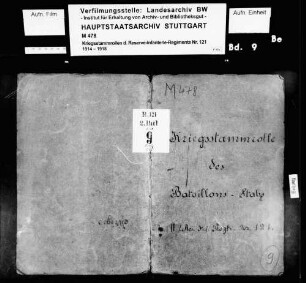 Aufn. Film
Verfilmungsstelle: Landesarchiv BW
- Institut für Erhaltung von Archiv- und Bibliotheksgut -
HAUPTSTAATSARCHIV STUTTGART
M 478
Kriegsstammrollen d. Reserve-Infanterie-Regiments Nr. 121
1914 - 1918
Aufn. Einheit
Bd. 9
Be
M 478
R. 121
9
Kriegsstammrolle
des
Bataillons-Stabs
121.
9